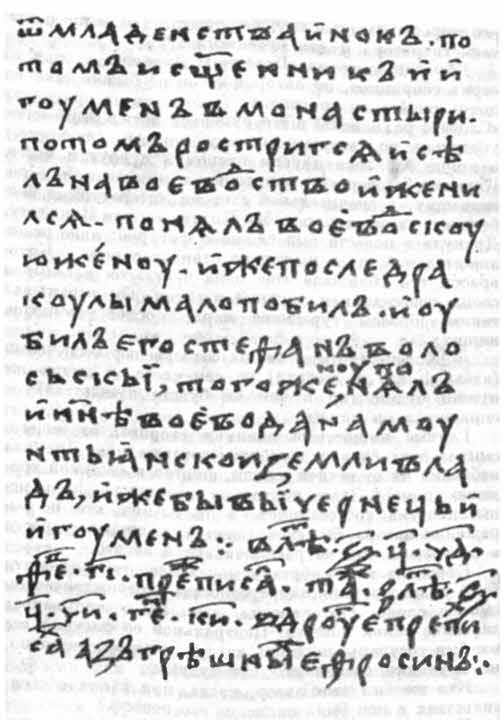 ѿмладенства инокъ · по
томъ и сщ҃енникъ и и
гоуменъ в монастыри ·
потомъ ростригсѧ и сѣ
лъ на воевⷣоство и жени
лсѧ · понѧлъ воевⷣоскоу
ю женоу · иже после дра
коулы мало побилъ · и оу
билъ его стефанъ воло
сьскы, того ж женоу понѧлъ
и н҃нѣ воевода на моу
нтьанскои земли вла
дъ, иже бывыи чернець и
игоуменъ ⁘ в лⷮѣ · ѕ҃ · ц҃ · чд҃ ·
феⷡ · гі҃ · преⷤ писаⷧ · таⷤ в лⷮѣ · ѕ҃ ·
ц҃ · чи҃ · геⷩ · ки҃ · в дроуⷢ е препи
саⷯ азъ грѣшныи ефросинъ ⁘